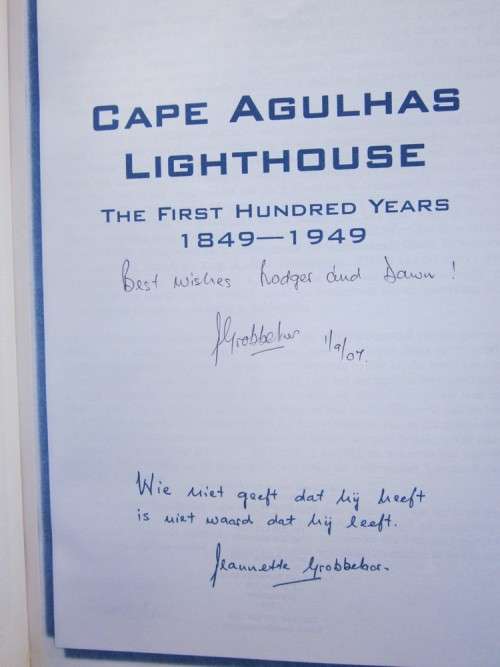 CAPE AGULHAS
LIGHTHOUSE
THE FIRST HUNDRED YEARS
1849—1949
Best wishes Rodger and Dawn !
JGrobbelar 1/9/07.
Wie niet geeft dat hij heeft
is niet waard dat hij leeft.
Jeannette Grobbelar.